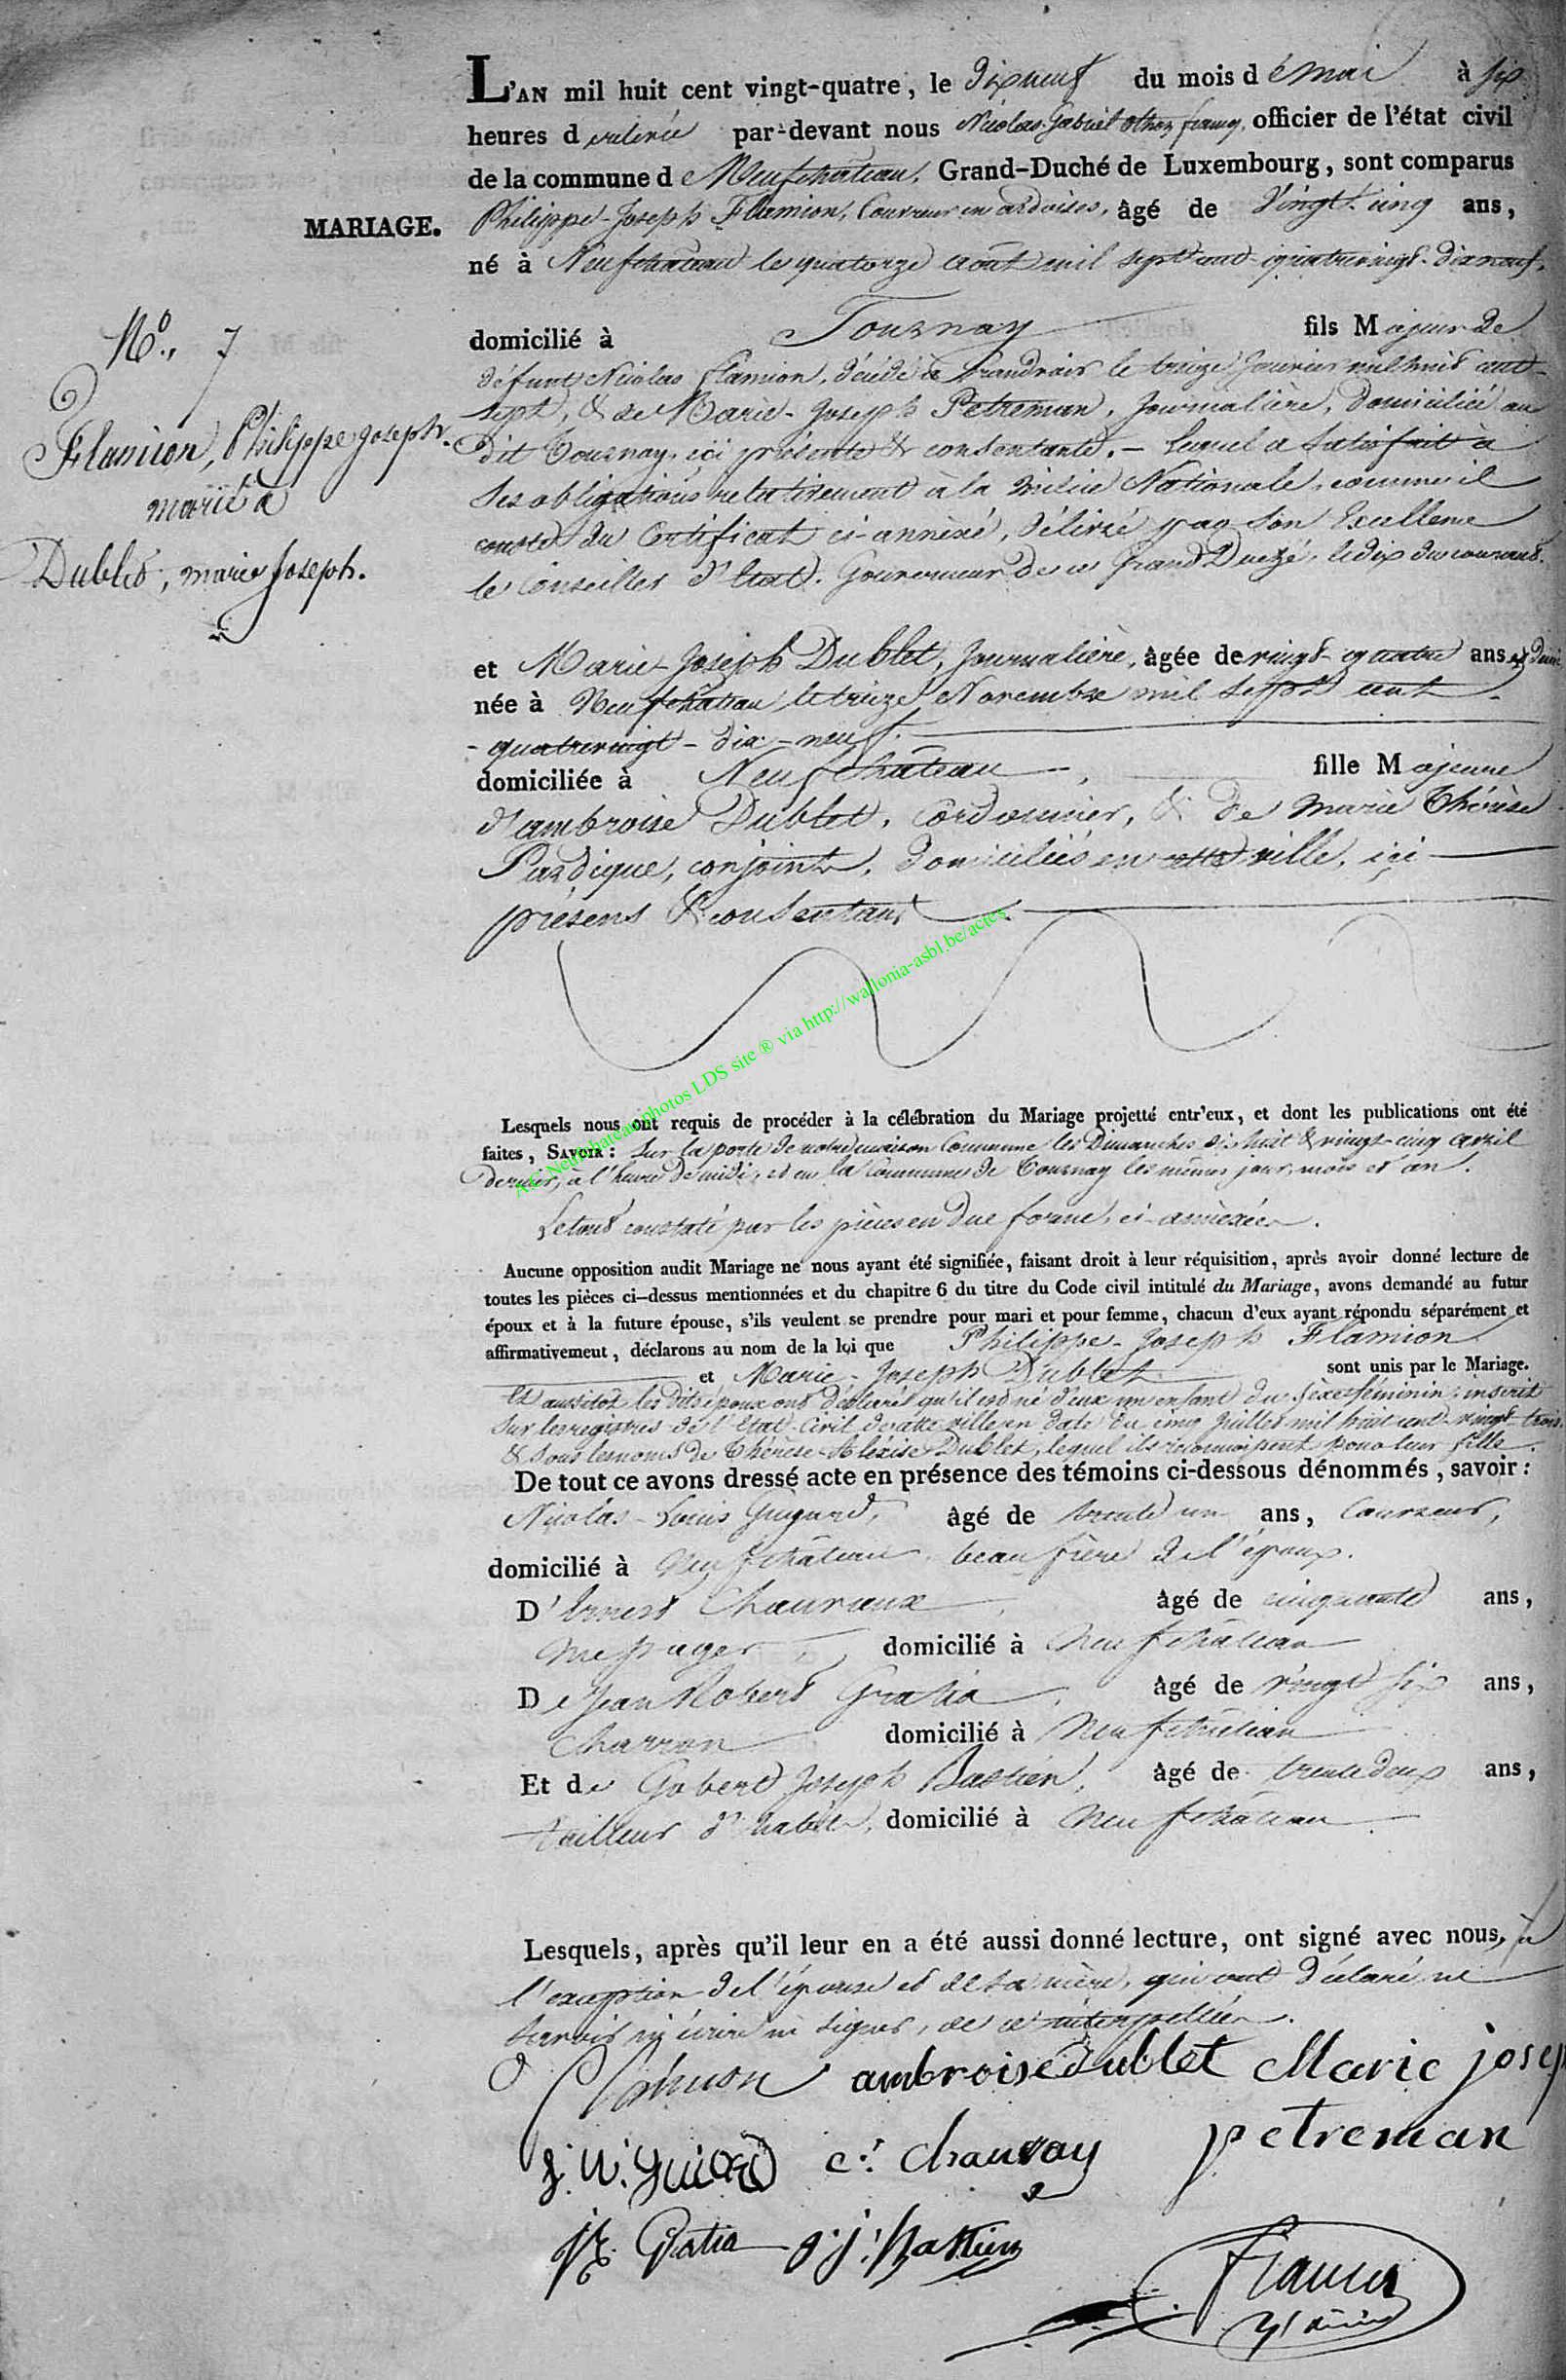 L'AN mil huit cent vingt-quatre, le dix neuf du mois de mai à six
heures de relevée par-devant nous Nicolas Gabriel officier de l'état civil
de la commune de Neufchâteau, Grand-Duché de Luxembourg, sont comparus
MARIAGE.
Philippe-Joseph Flamion, Couvreur en ardoises, âgé de Vingt-cinq ans,
né à Neufchâteau le quatorze août mil sept cent quatrevingt-dixneuf,
domicilié à Tournay fils Majeur de
défunt Nicolas Flamion, décédé à le treize mil huit cent
sept, & de Marie-Joseph Petreman, Journalière, domiciliée au
dit Tournay, ici présente & consentante. – lequel a satisfait à
ses obligations relativement à la milice Nationale, comme il
conste du Certificat ci-annexé, délivré par Son Excellence
le Conseiller d'Etat, Gouverneur de ce Grand Duché, le dix du courant.
No. 7
Flamion, Philippe Joseph.
marié à
Dublet, marie Joseph.
et Marie-Joseph Dublet, Journalière, âgée de vingt-quatre ans et demi
née à Neufchâteau le treize Novembre mil sept cent
-quatrevingt-dix-neuf.
domiciliée à Neufchâteau, fille Majeure
d'ambroise Dublet, Cordonnier, & de marie Thérèse
Purdique, conjoints, domiciliés en cette ville, ici
présens & consentans
A.C. Neufchateau photos LDS site ® via http://wallonia-asbl.be/actes
Lesquels nous ont requis de procéder à la célébration du Mariage projetté entr'eux, et dont les publications ont été
faites, SAVOIR : Sur la porte de notre maison Commune les Dimanches dix huit & vingt-cinq avril
dernier, à l'heure de midi, et en la Commune de Tournay les mêmes jour, mois et an.
Le tout constaté par les pièces en due forme, ci-annexées.
Aucune opposition audit Mariage ne nous ayant été signifiée, faisant droit à leur réquisition, après avoir donné lecture de
toutes les pièces ci-dessus mentionnées et du chapitre 6 du titre du Code civil intitulé du Mariage, avons demandé au futur
époux et à la future épouse, s'ils veulent se prendre pour mari et pour femme, chacun d'eux ayant répondu séparément et
affirmativement, déclarons au nom de la loi que Philippe-Joseph Flamion
et Marie-Joseph Dublet sont unis par le Mariage.
Et aussitot les dits époux ont déclaré qu'il est né d'eux un enfant du sexe féminin, inscrit
sur les registres de l'Etat-Civil de cette ville en date du cinq Juillet mil huit cent vingt-trois,
& sous les noms de Thérèse-Alexise Dublet, lequel ils reconnoissent pour leur fille.
De tout ce avons dressé acte en présence des témoins ci-dessous dénommés, savoir :
Nicolas-Louis âgé de trente un ans, Couvreur,
domicilié à Neufchâteau, beau frère de l'époux.
D'Ernest Chauvaux, âgé de cinquante ans,
Messager, domicilié à Neufchâteau
De Jean Robert Gratia, âgé de vingt six ans,
Charron domicilié à Neufchâteau
Et de Gobert Joseph Bastien, âgé de trente deux ans,
tailleur d'habits, domicilié à Neufchâteau
Lesquels, après qu'il leur en a été aussi donné lecture, ont signé avec nous, à
l'exception de l'épouse et de sa mère, qui ont déclaré ne
savoir ny écrire ni signer, de ce interpellées.
ambroise dublet Marie josep
petreman
Gratia